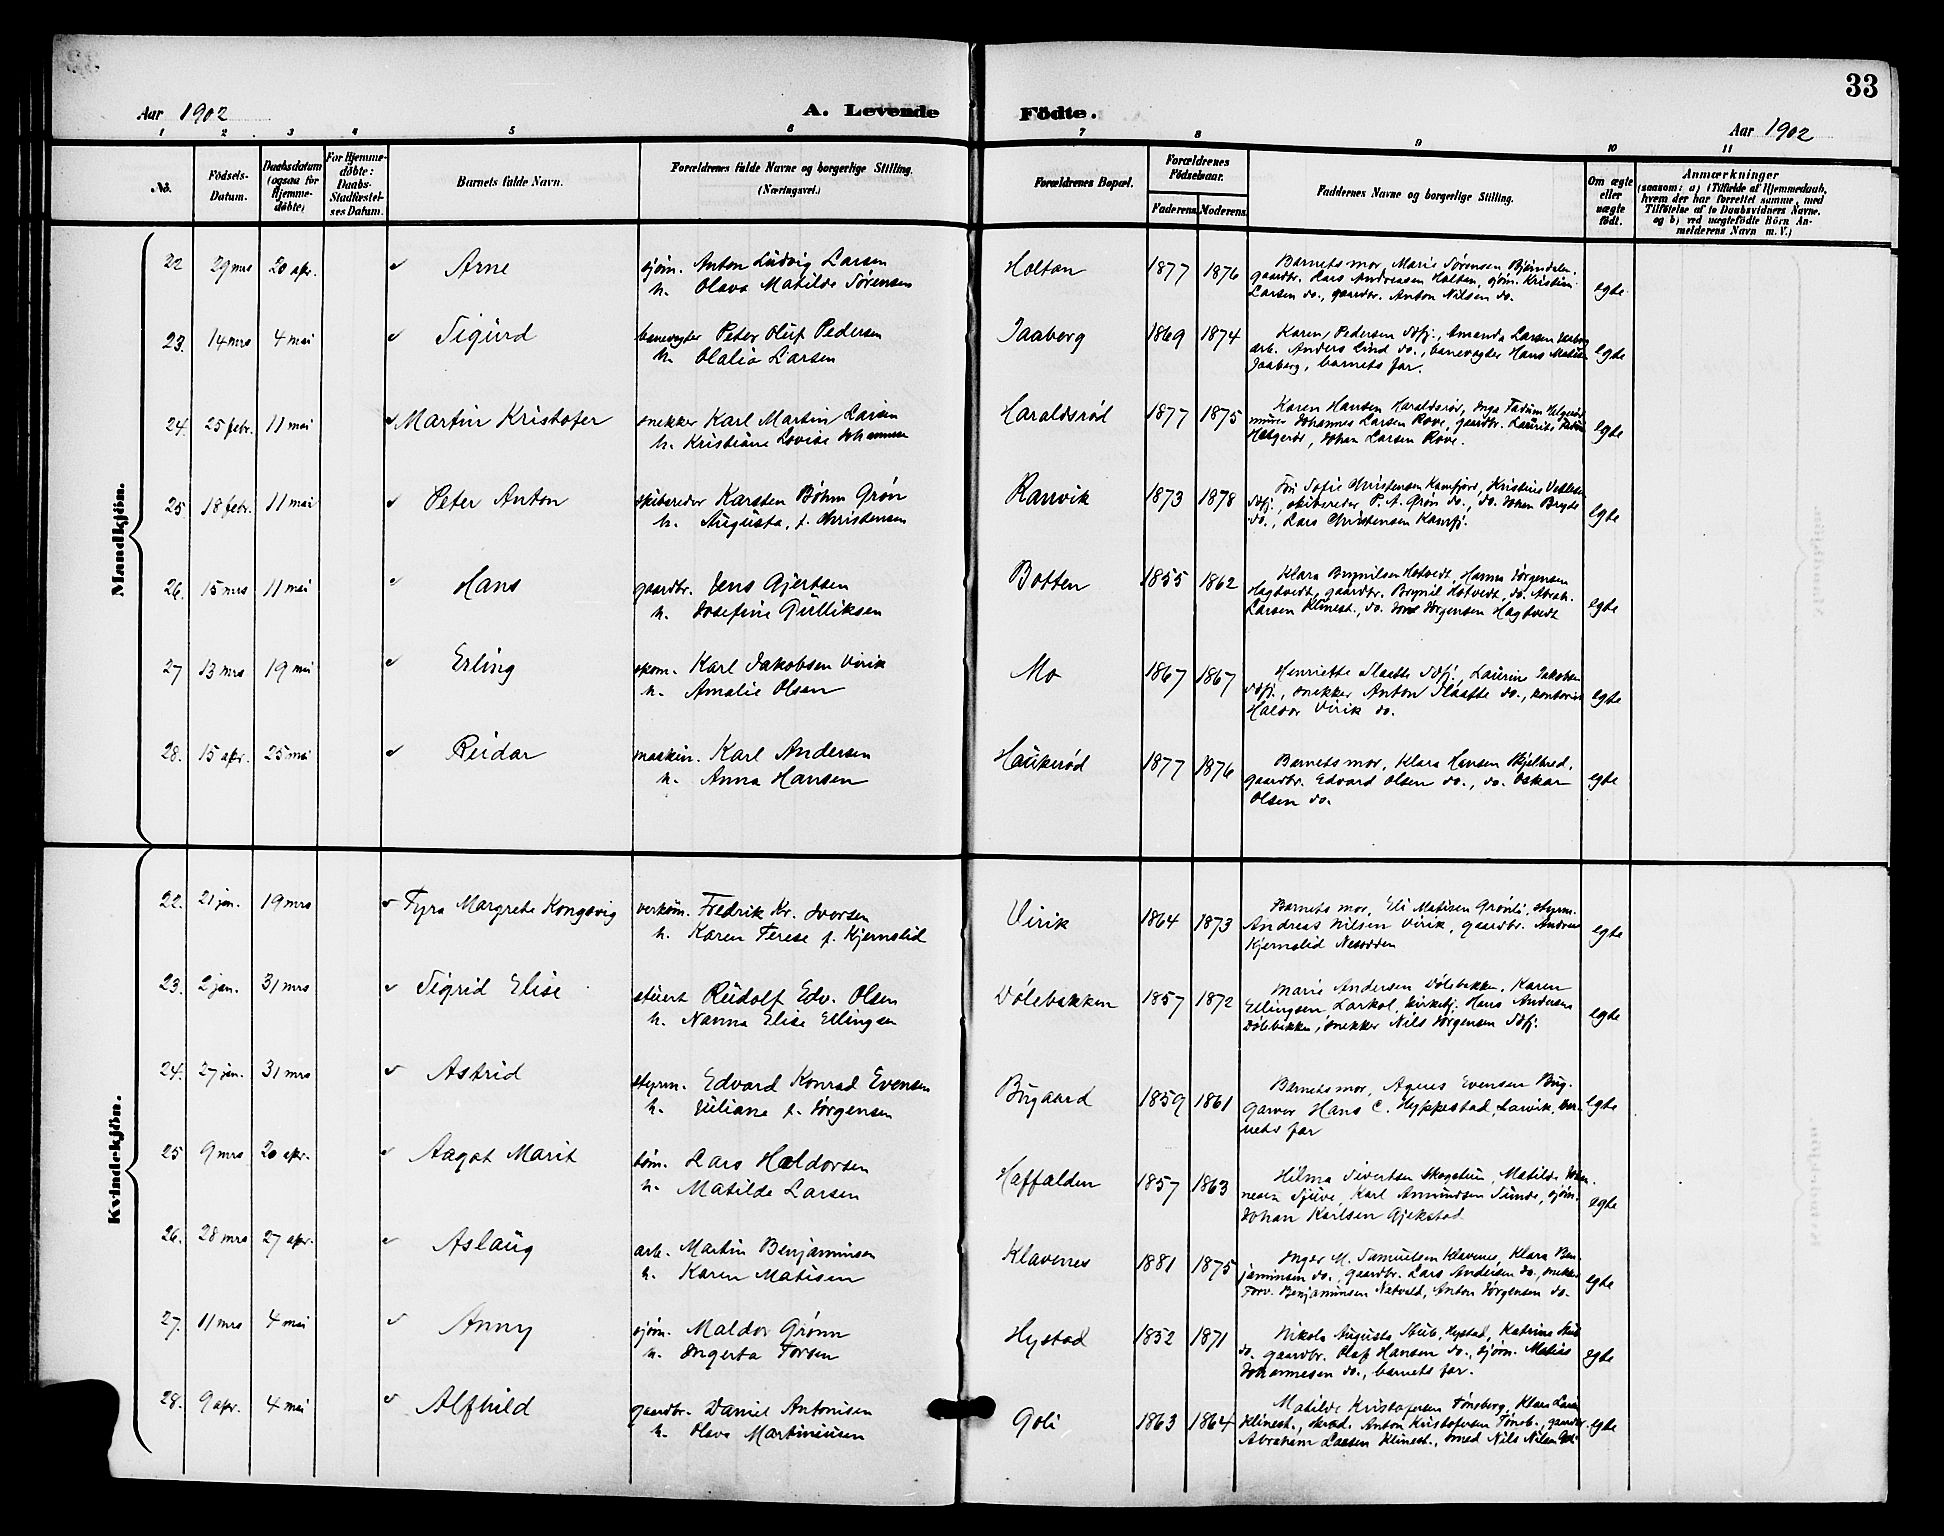 33
Aar 1902
A. Levende Födte.
Aar 1902
1 2 3 4 5 6 7 8 9 10 11
No.
Födsels-Datum.
Daabsdatum (ogsaa for Hjemme-döbte)
For Hjemme-döbte: Daabs-Stadfæstel-ses Datum.
Barnets fulde Navn.
Forældrenes fulde Navne og borgerlige Stilling.
(Næringsvei.)
Forældrenes Bopæl.
Forældrenes Födselsaar.
Faderens. Moderens.
Faddernes Navne og borgerlige Stilling.
Om ægte eller uægte födt.
Anmærkninger
(saasom: a) i Tilfælde af Hjemmedaab,
hvem der har forrettet samme, med
Tilföielse af to Daabsvidners Navne.
og b) ved uægtefödte Börn An-
melderens Navn m. V.)
Mandkjön.
22 29 mrs 20 apr. Arne sjøm. Anton Ludvig Larsen Holtan 1877 1876 Barnets mor, Marie Sørensen Bjøindalen.
h. Olava Matilde Sørensen gaardbr. Lars Andreasen Holtan, sjøm. Kristian
Larsen do., gaardbr. Anton Nilsen do. egte
23. 14 mrs 4 mai Sigurd banevogter Peter Oluf Pedersen Jaaberg 1869 1874 Karen Pedersen Sdfj., Amanda Larsen
h. Olalia Larsen arb. Anders Lind do., banevogter Hans
Jaaberg, barnets far. egte
24. 25 febr. 11 mai Martin Kristofer snekker Karl Martin Larsen Haraldsrød 1877 1875 Karen Hansen Haraldsrød, Inga Fadum Helgerød
h. Kristiane Lovise Johannesen murer Johannes Larsen Rove, gaardbr. Laurits
Helgerød, Johan Larsen Rove. egte
25. 18 febr. 11 mai Peter Anton skibsreder Karsten Bøhm Grøn Ranvik 1873 1878 Sofie Christensen Kamfjord, Kristine
h. Augusta, f. Christensen Sdfj., skibsreder P. A. Grøn do., do. Johan Bryde
do., Lars Christensen Kamfj. egte
26. 15 mrs 11 mai Hans gaardbr. Jens Gjertsen Botten 1855 1862 Klara Brynilsen Hotvedt, Hanna Jørgensen
h. Josefine Gulliksen Hagtvedt, gaardbr. Brynil Hotvedt, do. Abrah.
Larsen Klinest., do. Jens Jørgensen Hagtvedt egte
27 13 mrs 19 mai Erling skom. Karl Jakobsen Virik Mo 1867 1867 Henriette Slaatte Sdfj., Laurin Jakobsen
h. Amalie Olsen Sdfj., snekker Anton Slaatte do., kontorist
Haldor Virik do. egte
28. 15 apr. 25 mai Reidar maskin. Karl Andersen Haukerød 1877 1876 Barnets mor, Klara Hansen Skjelbred,
h. Anna Hansen gaardbr. Edvard Olsen do., do. Oskar
Olsen do. egte
Kvindekjön.
22. 21 jan. 19 mrs Tyra Margrete Kongsvig verksm. Fredrik Kr. Iversen Virik 1864 1873 Barnets mor, Eli Matisen Grønli, styrm.
h. Karen Terese f. Kjernslid Andreas Nilsen Virik, gaardbr. Andreas
Kjernslid Nesodden egte
23. 2 jan. 31 mrs Sigrid Elise stuert Rudolf Edv. Olsen Dølebakken 1857 1872 Marie Andersen Dølebakken, Karen
h. Nanna Elise Ellingsen Ellingsen Larkol, kirketj. Hans Andersen
Dølebakken, snekker Nils Jørgensen Sdfj. egte
24. 27 jan. 31 mrs Astrid styrm. Edvard Konrad Evensen Bugaard 1859 1861 Barnets mor, Agnes Evensen Bug.
h. Juliane f. Jørgensen Garver Hans C. Hyppestad, Larvik, bar-
nets far egte
25 9 mrs 20 apr. Aagot Marit tøm. Lars Haldorsen Haffalden 1857 1863 Hilma Sivertsen Skogstun, Matilde
h. Matilde Larsen Sjuve, Karl Amundsen Sunde, sjøm.
Johan Karlsen Gjekstad egte
26. 28 mrs 27 apr. Aslaug arb. Martin Benjaminsen Klavenes 1881 1875 Inger M. Samuelsen Klavenes, Klara Ben-
h. Karen Matisen jaminsen do., gaardbr. Lars Andersen do., snekker
Torv. Benjaminsen Natvald, Anton Jørgensen do. egte
27. 11 mrs 4 mai Anny sjøm. Haldor Grønn Hystad 1852 1871 Nikola Augusta Stub, Hystad, Katrine Stub
h. Ingerta Torsen do. gaardbr. Olaf Hansen do., sjøm. Matias
Johannesen do., barnets far. egte
28. 9 apr. 4 mai Alfhild gaardbr. Daniel Antonisen Goli 1863 1864 Matilde Kristofersen Tønsberg, Klara Larsen
h. Olava Martinusen Klinest., skræd. Anton Kristofersen Tønsb., gaardbr.
Abraham Larsen Klinest., smed Nils Nilsen Goli egte